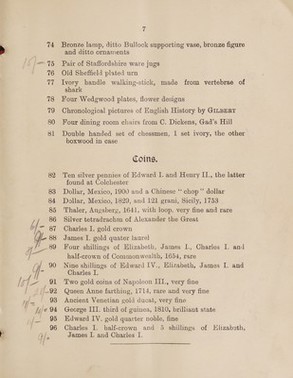 7
74 Bronze lamp, ditto Bullock supporting vase, bronze figure
and ditto ornaments
10/- 75 Pair of Staffordshire ware jugs
76 Old Sheffield plated urn
77 Ivory handle walking-stick, made from vertebrae of
shark
78 Four Wedgwood plates, flower designs
79 Chronological pictures of English History by GILBERT
80 Four dining room chairs from C. Dickens, Gad's Hill
81 Double handed set of chessmen, 1 set ivory, the other
boxwood in case
Coins.
82 Ten silver pennies of Edward I. and Henry II., the latter
found at Colchester
83 Dollar, Mexico, 1900 and a Chinese "chop" dollar
84 Dollar, Mexico, 1829, and 121 grani, Sicily, 1753
85 Thaler, Augsberg, 1641, with loop, very fine and rare
86 Silver tetradrachm of Alexander the Great
87 Charles I. gold crown
88 James I. gold quater laurel
89 Four shillings of Elizabeth, James I., Charles I. and
half-crown of Commonwealth, 1654, rare
90 Nine shillings of Edward IV., Elizabeth, James I. and
Charles I.
91 Two gold coins of Napoleon III., very fine
92 Queen Anne farthing, 1714, rare and very fine
93 Ancient Venetian gold ducat, very fine
94 George III. third of guinea, 1810, brilliant state
95 Edward IV. gold quarter noble, fine
96 Charles I. half-crown and 5 shillings of Elizabeth,
James I. and Charles I.